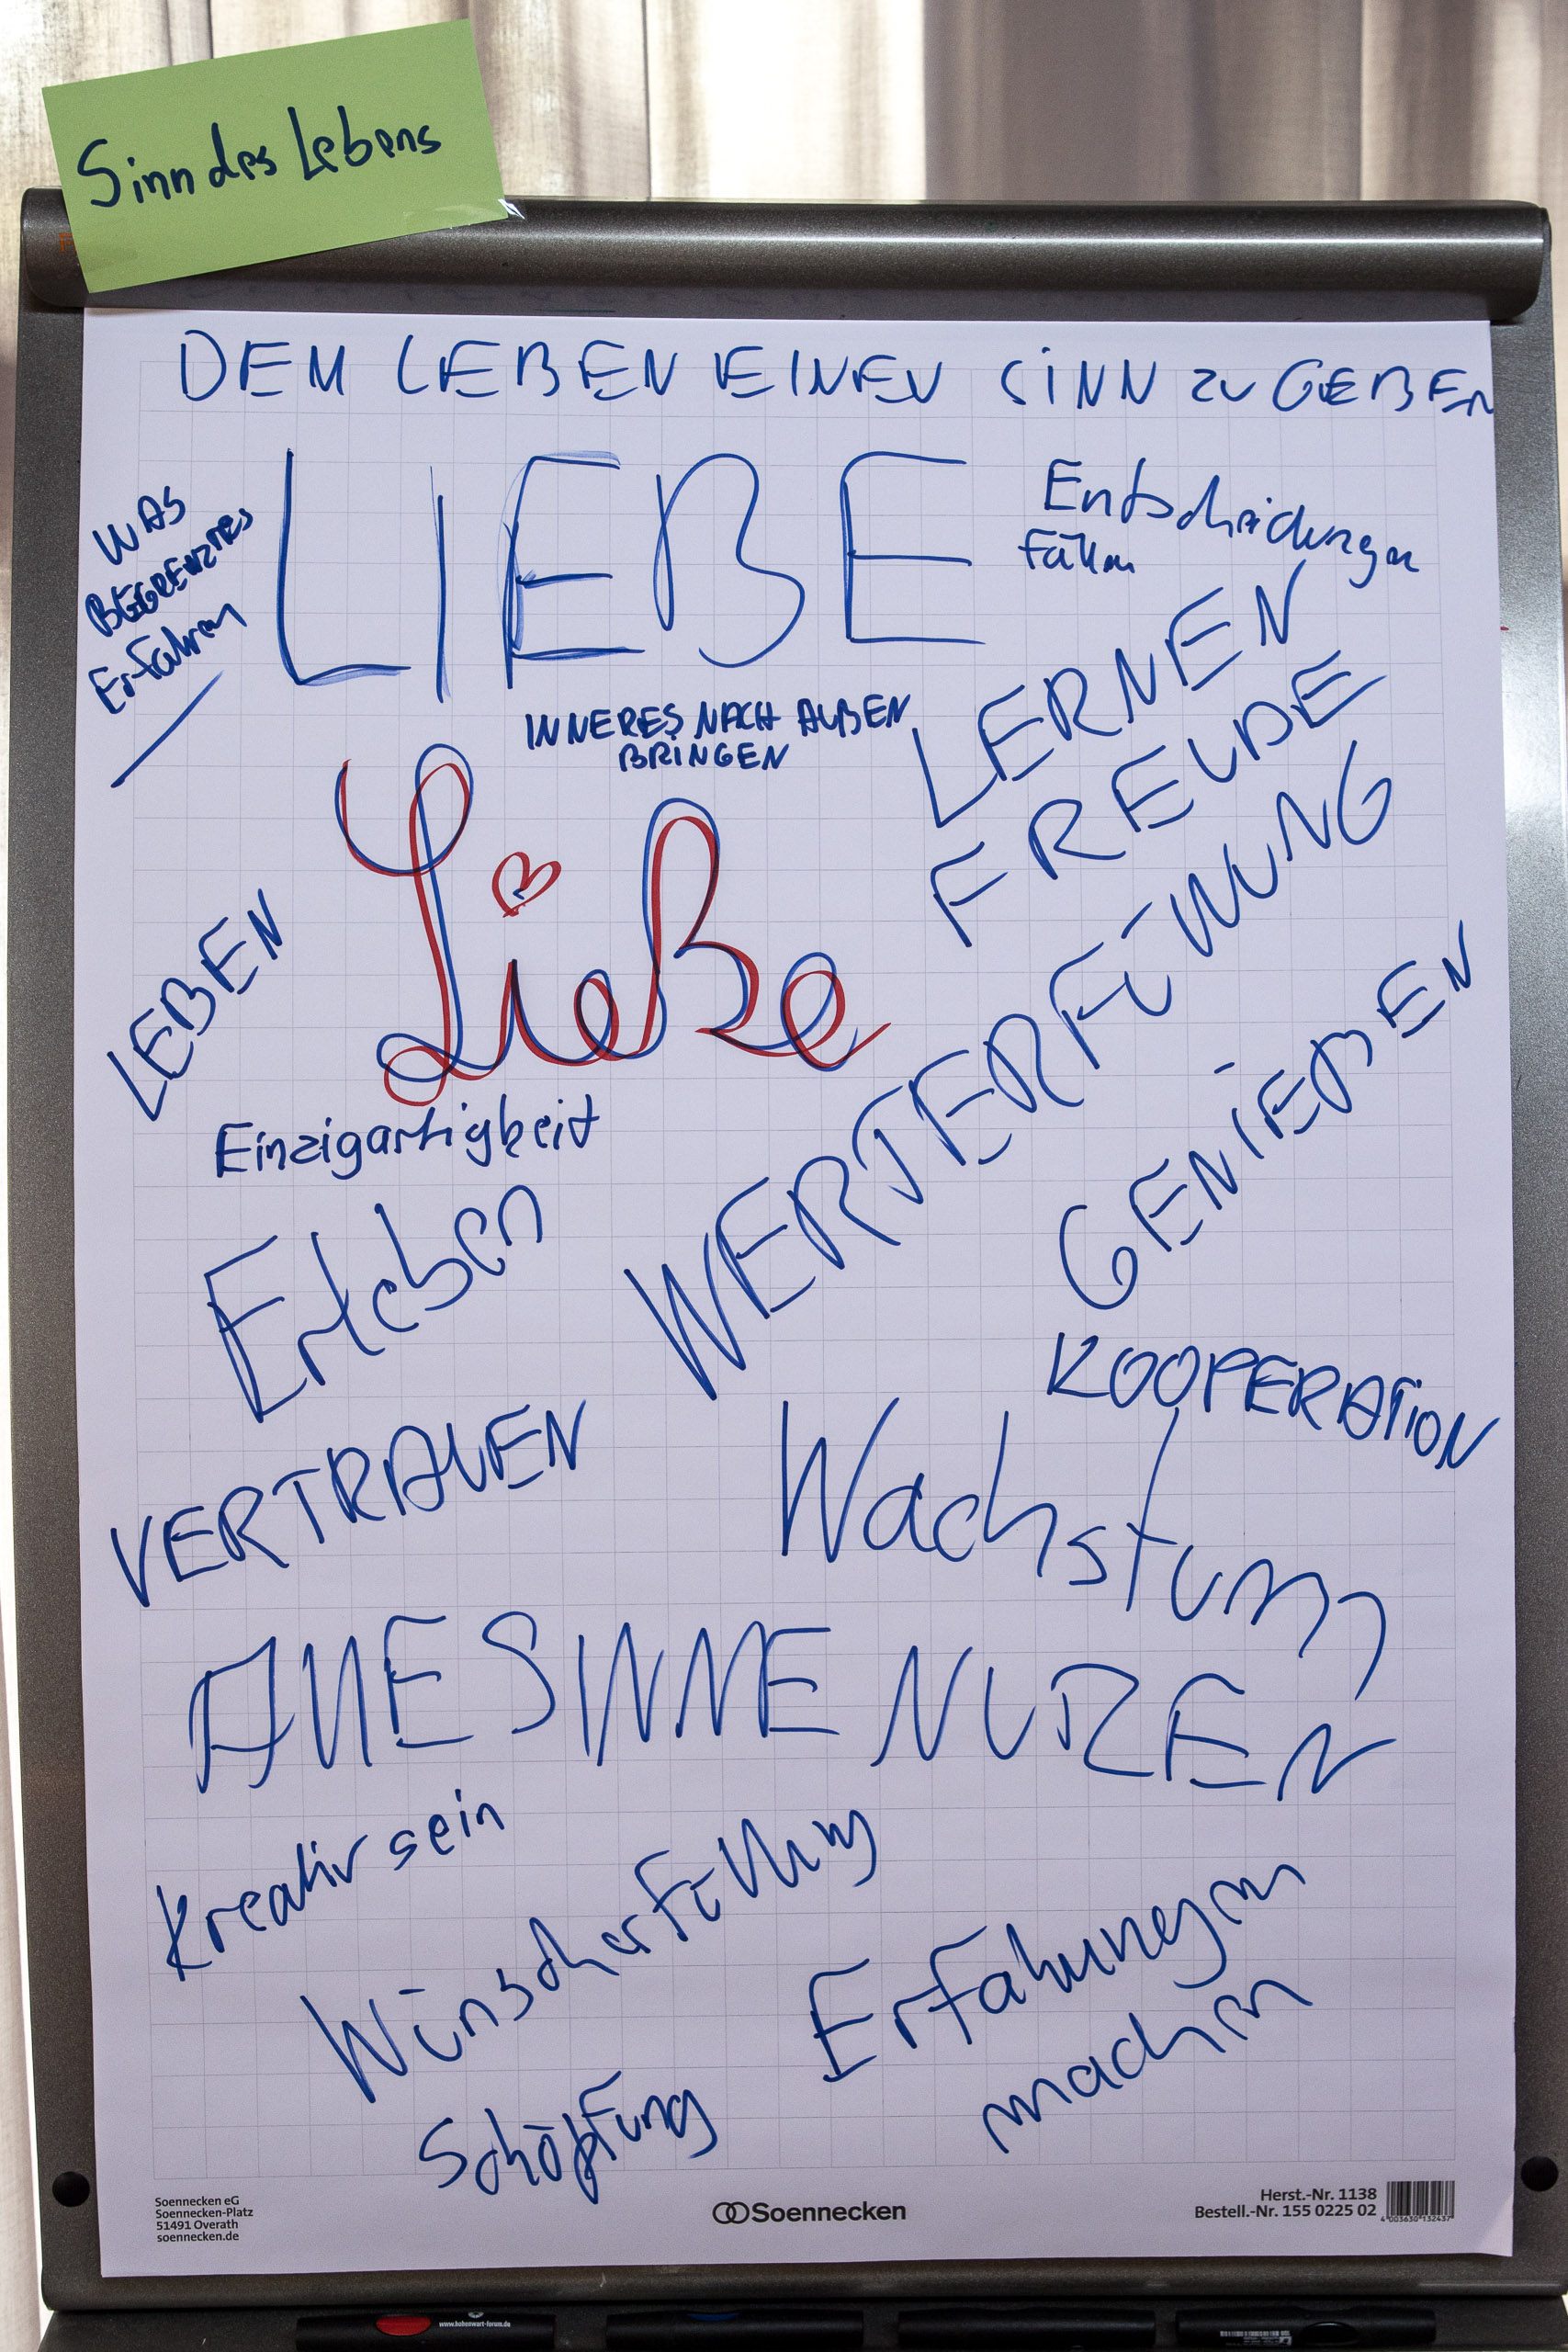 Sinn des Lebens
DEM LEBEN EINEN SINN ZU GEBEN
WAS
BEGRENZTES
Erfahren
LIEBE
Entscheidungen
fällen
INNERES NACH AUßEN
BRINGEN
LERNEN
FREUDE
Liebe
WERTERFÜLLUNG
LEBEN
GENIEßEN
Einzigartigkeit
Erleben
KOOPERATION
VERTRAUEN
Wachstum
ALLE SINNE NUTZEN
Kreativ sein
Wünscherfüllung
Erfahrungen
machen
Schöpfung
Soennecken eG
Soennecken-Platz
51491 Overath
soennecken.de
Soennecken
Herst.-Nr. 1138
Bestell.-Nr. 155 0225 02
4 003630 132437
www.hohenwart-forum.de